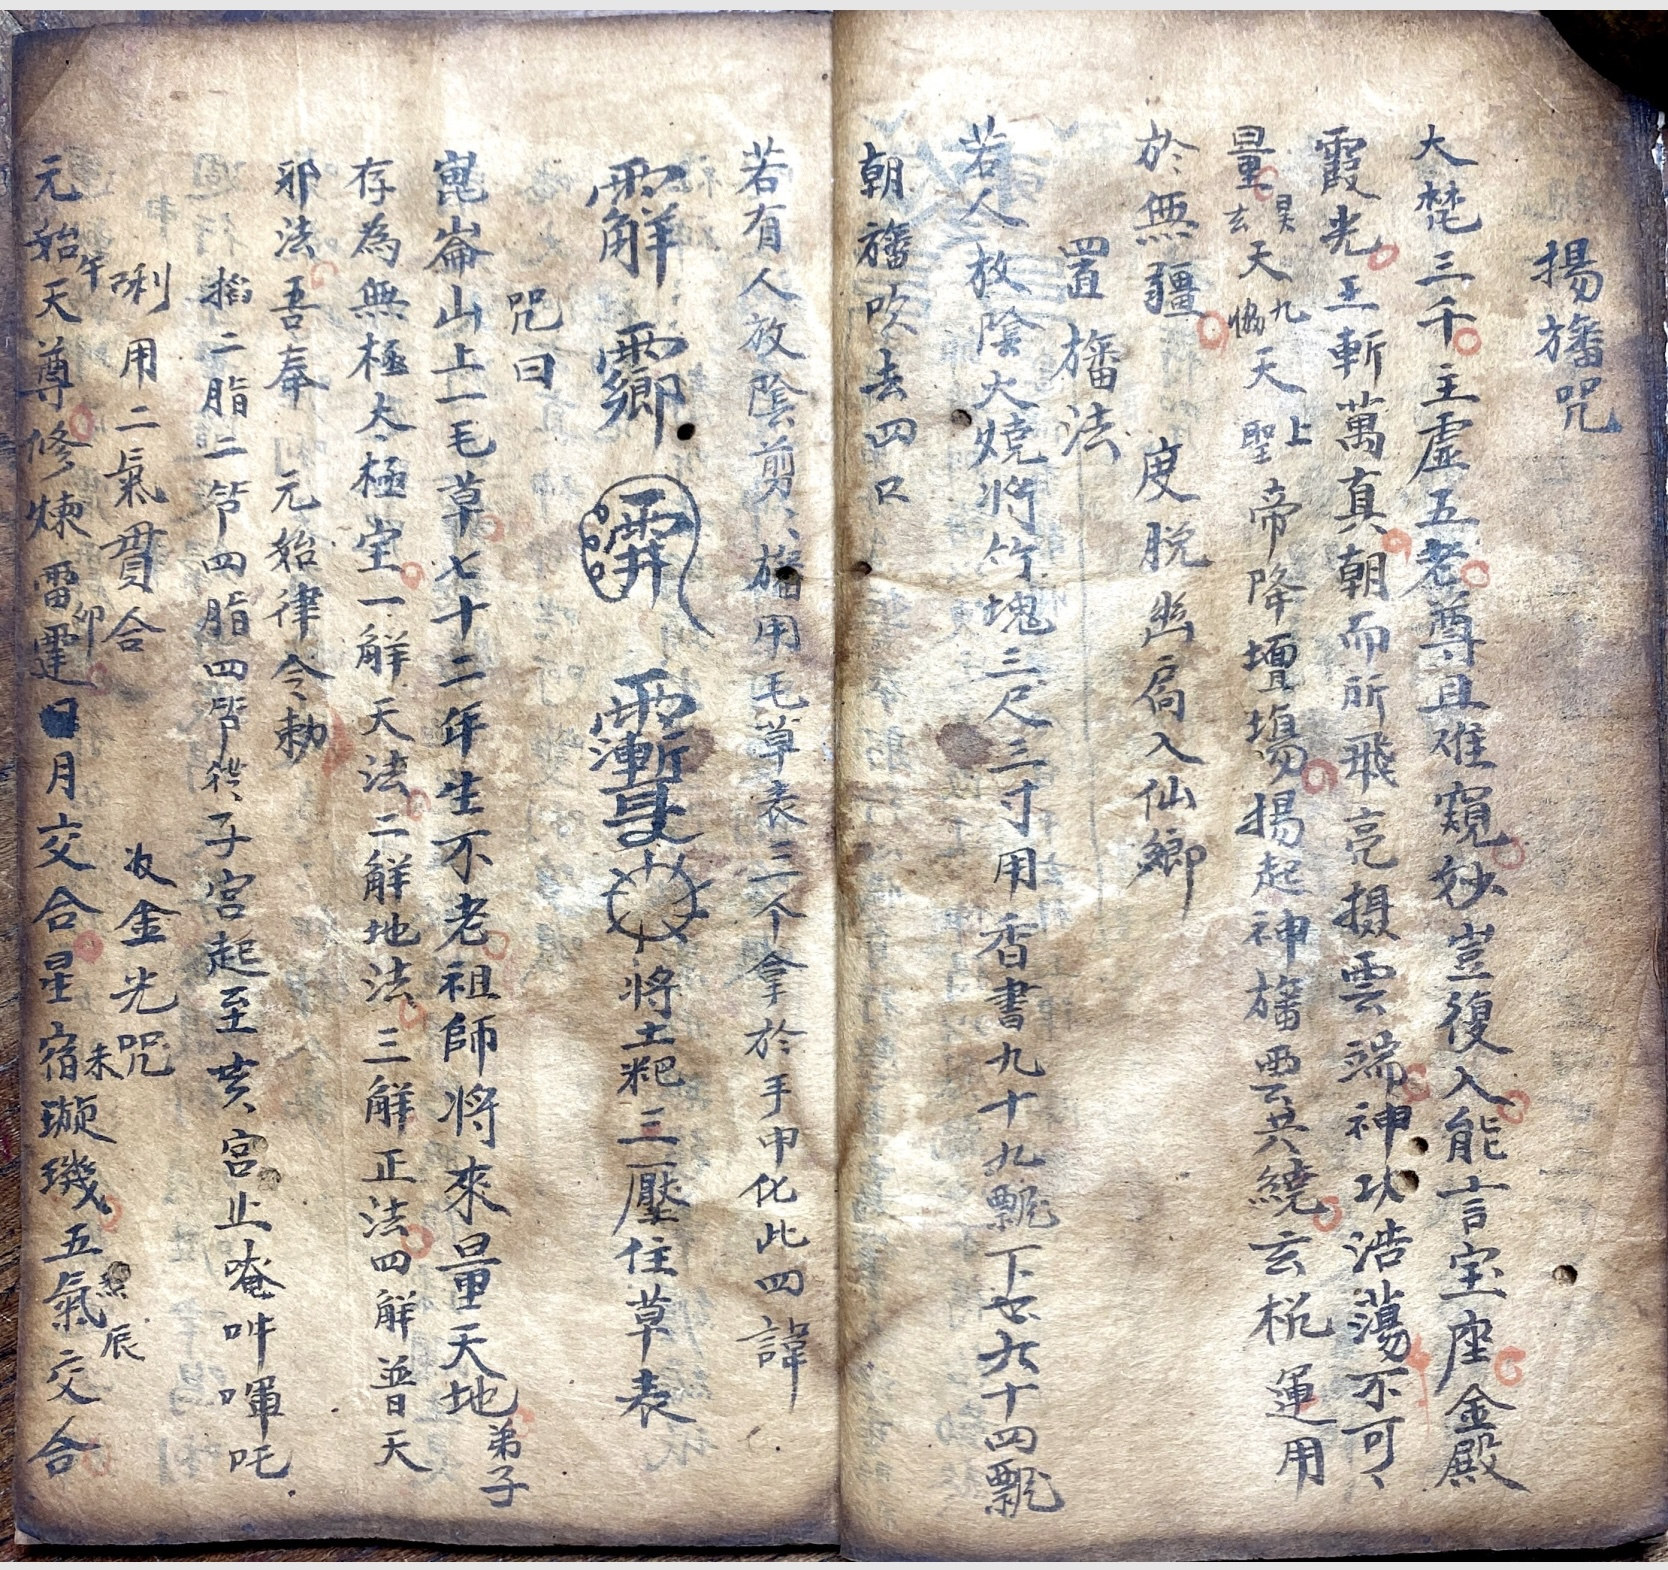 揚旛咒
大梵三千主虛五老尊且难窺妙豈復入能言宝座金殿
霞光正斬萬真朝而所飛亮摄雲端神功浩蕩不可
量昊玄天九天上聖帝降壇塲揚起神旛雲共繞玄棁運用
於無疆 度脱幽局入仙鄉
置旛法
若人放陰火燒將竹塊三尺三寸用香書九十九飄下六十四飄
朝旛吹去四口
若有人放陰剪旛用毛草表三个拿於手中化此四諱
將土粑三壓住草表
咒曰
崑崙山上一毛草七十二年生不老祖師將來量天地弟子
存為無極大極宝一觧天法二觧地法三觧正法四觧普天
邪法吾奉元始律令勅
搯二脂二节四脂四节從子宮起至亥宮止唵吽㖇吒
唎用二氣貫合 收金光咒
元始天尊修煉雷霆日月交合星宿璇璣五氣交合
午 卯 未 辰